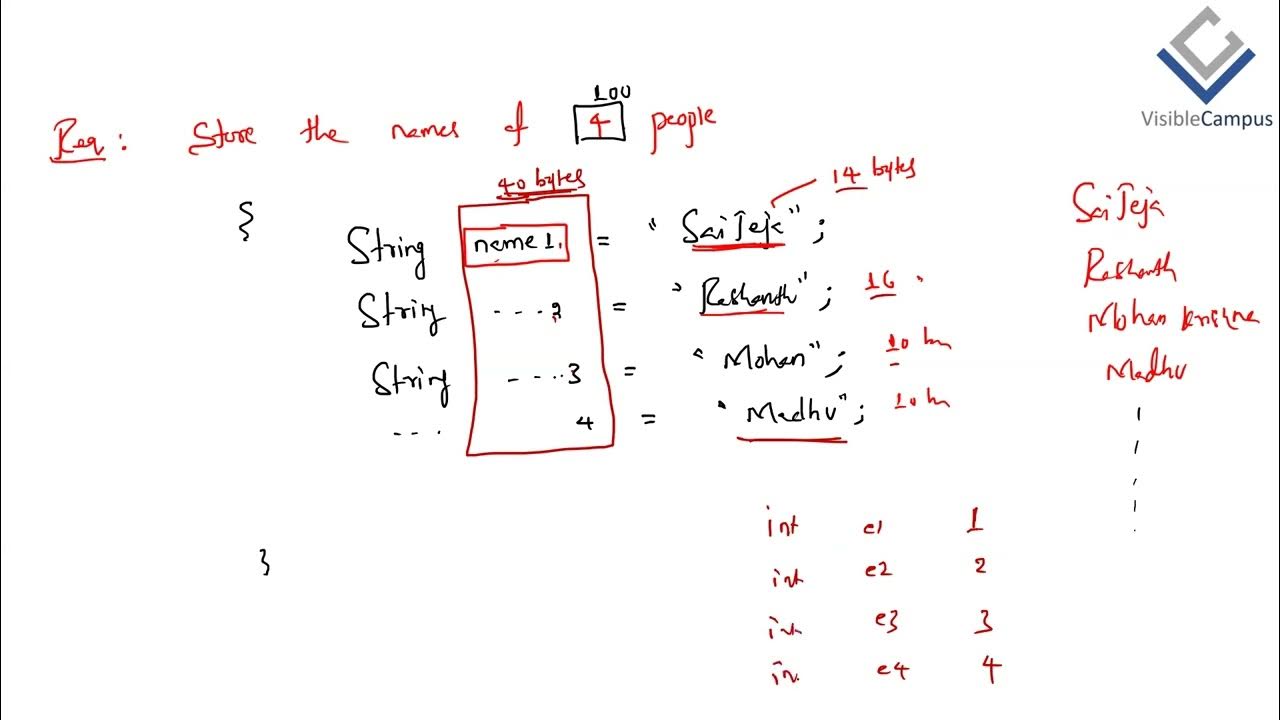 VisibleCampus
100
Req: Store the names of 4 people
40 bytes
14 bytes
{
String name 1. = "SaiTeja";
String - - - . 2 = "Reshanth"; 16
String - - - . . 3 = "Mohan"; 10
- - - . 4 = "Madhu"; 10
}
SaiTeja
Reshanth
Mohan krishna
Madhu
int e1 1
int e2 2
int e3 3
in. e4 4